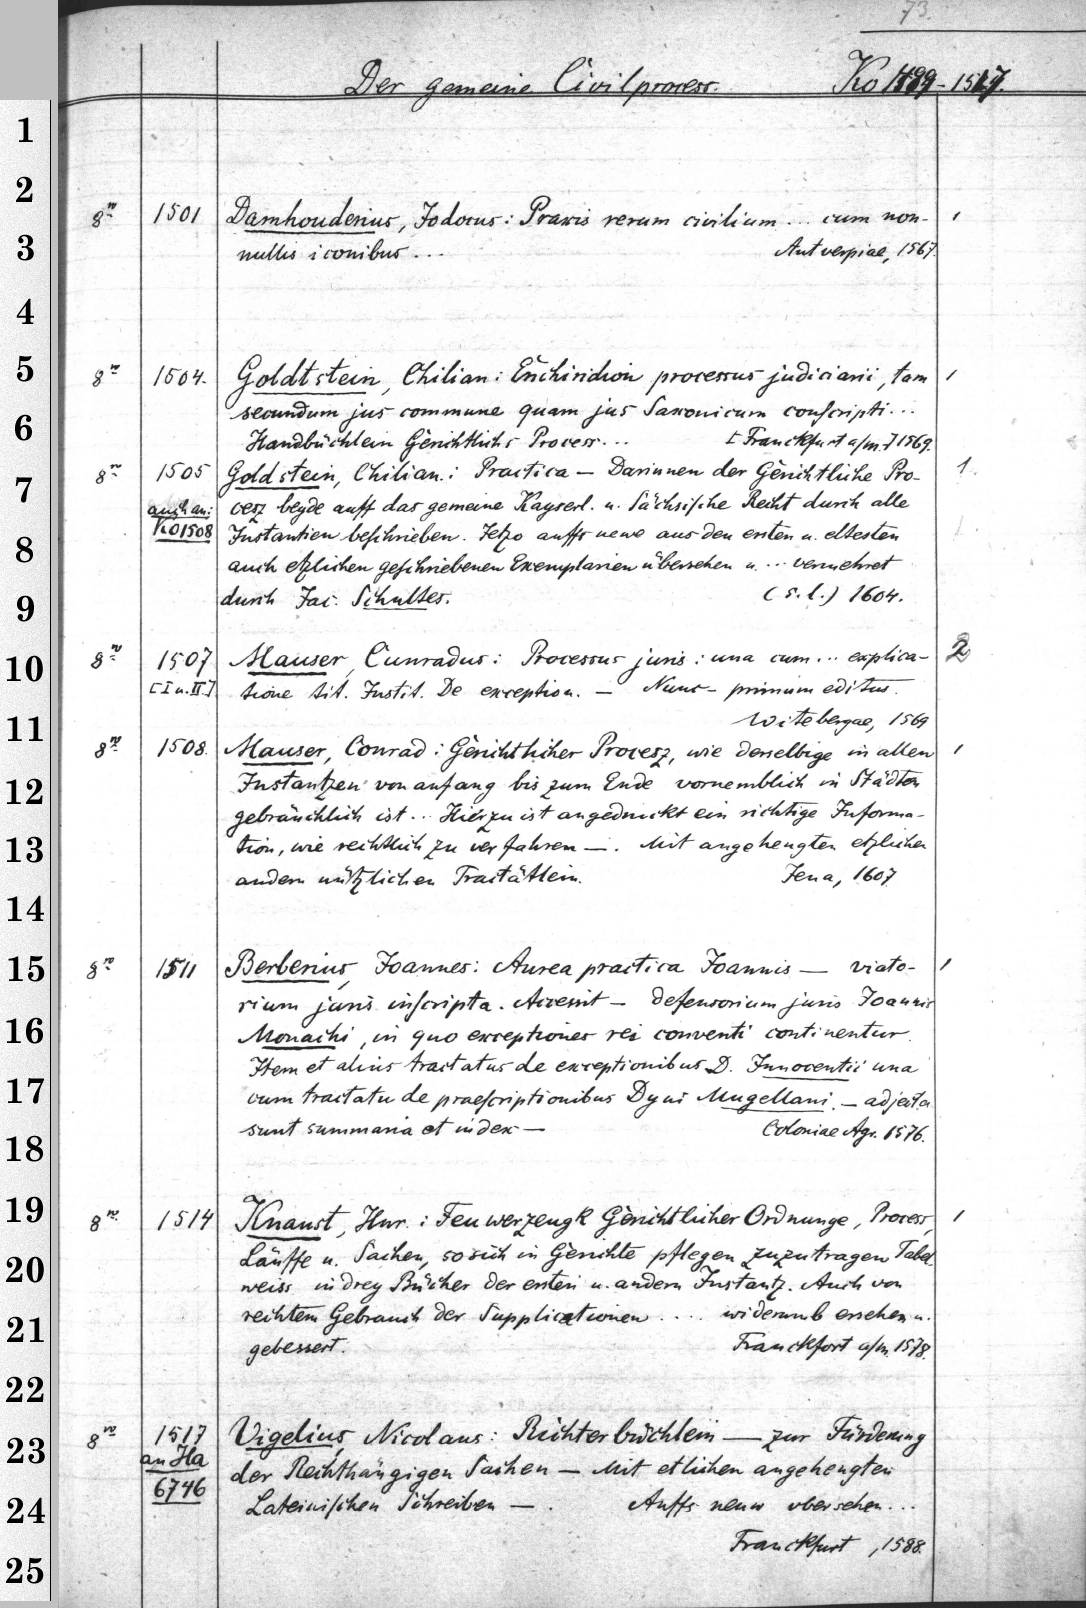 73.
Der gemeine Civilprocess. Ko 1499-1517.
8º 1501 Damhouderius, Jodocus: Praxis rerum civilium ... cum non- 1
nullis iconibus ... Antverpiae, 1567.
8º 1504. Goldtstein, Chilian: Enchiridion processus judiciarii, tam 1
secundum jus commune quam jus Saxonicum conscripti...
Handbüchlein Gerichtlichs Process... [Franckfurt a/m.] 1569.
8º 1505 Goldstein, Chilian.: Practica — Darinnen der Gerichtliche Pro- 1.
auch an: cesz beyde auff das gemeine Kayserl. u. Sächsische Recht durch alle
Ko 1508 Instantien beschrieben. Jetzo auffs newe aus den ersten u. eltesten
auch etzlichen geschriebenen Exemplarien übersehen u. ... vermehret
durch Jac. Schultes. (s.l.) 1604.
8º 1507 Mauser, Cunradus: Processus juris: una cum... explica- 2
[I u. II.] tione tit. Instit. De exception. — Nunc - primum editus.
Witebergae, 1569
8º 1508. Mauser, Conrad: Gerichtlicher Procesz, wie derselbige in allen 1
Instantzen von anfang bis zum Ende vornemblich in Städten
gebräuchlich ist... Hierzu ist angedruckt ein richtige Informa-
tion, wie rechtlich zu verfahren —. Mit angehengten etzlichen
andern nützlichen Tractätlein. Jena, 1607
8º 1511 Berberius, Joannes: Aurea practica Joannis — viato- 1
rium juris inscripta. Accessit — defensorium juris Joannis
Monachi, in quo exceptiones rei conventi continentur.
Item et alius tractatus de exceptionibus D. Innocentii una
cum tractatu de praescriptionibus Dyni Mugellani. — adjecta
sunt summaria et index — Coloniae Agr. 1576.
8º 1514 Knaust, Hnr.: Feuwerzeugk Gerichtlicher Ordnunge, Process, 1
Läuffe u. Sachen, so sich in Gerichte pflegen zuzutragen Tabel
weiss in drey Bücher der ersten u. andern Instantz. Auch von
rechtem Gebrauch der Supplicationen .... widerumb ersehen u.
gebessert. Franckfort a/m. 1578.
8º 1517 Vigelius, Nicolaus: Richterbüchlein — zur Fürderung
an Ha der Rechthängigen Sachen — Mit etlichen angehengten
6746 Lateinischen Schreiben —. Auffs neuw vbersehen...
Franckfurt, 1588.
1
2
3
4
5
6
7
8
9
10
11
12
13
14
15
16
17
18
19
20
21
22
23
24
25